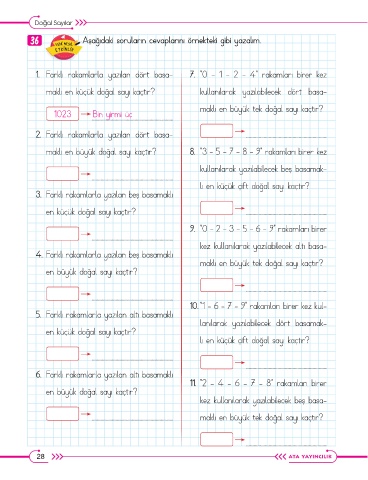 Doğal Sayılar
36
Aşağıdaki soruların cevaplarını örnekteki gibi yazalım.
1. Farklı rakamlarla yazılan dört basa-
maklı en küçük doğal sayı kaçtır?
1023 Bin yirmi üç
2. Farklı rakamlarla yazılan dört basa-
maklı en büyük doğal sayı kaçtır?
3. Farklı rakamlarla yazılan beş basamaklı
en küçük doğal sayı kaçtır?
4. Farklı rakamlarla yazılan beş basamaklı
en büyük doğal sayı kaçtır?
5. Farklı rakamlarla yazılan altı basamaklı
en küçük doğal sayı kaçtır?
6. Farklı rakamlarla yazılan altı basamaklı
en büyük doğal sayı kaçtır?
7. "0 - 1 - 2 - 4" rakamları birer kez
kullanılarak yazılabilecek dört basa-
maklı en büyük tek doğal sayı kaçtır?
8. "3 - 5 - 7 - 8 - 9" rakamları birer kez
kullanılarak yazılabilecek beş basamak-
lı en küçük çift doğal sayı kaçtır?
9. "0 - 2 - 3 - 5 - 6 - 9" rakamları birer
kez kullanılarak yazılabilecek altı basa-
maklı en büyük tek doğal sayı kaçtır?
10. "1 - 6 - 7 - 9" rakamları birer kez kul-
lanılarak yazılabilecek dört basamak-
lı en küçük çift doğal sayı kaçtır?
11. "2 - 4 - 6 - 7 - 8" rakamları birer
kez kullanılarak yazılabilecek beş basa-
maklı en büyük tek doğal sayı kaçtır?
28
ATA YAYINCILIK